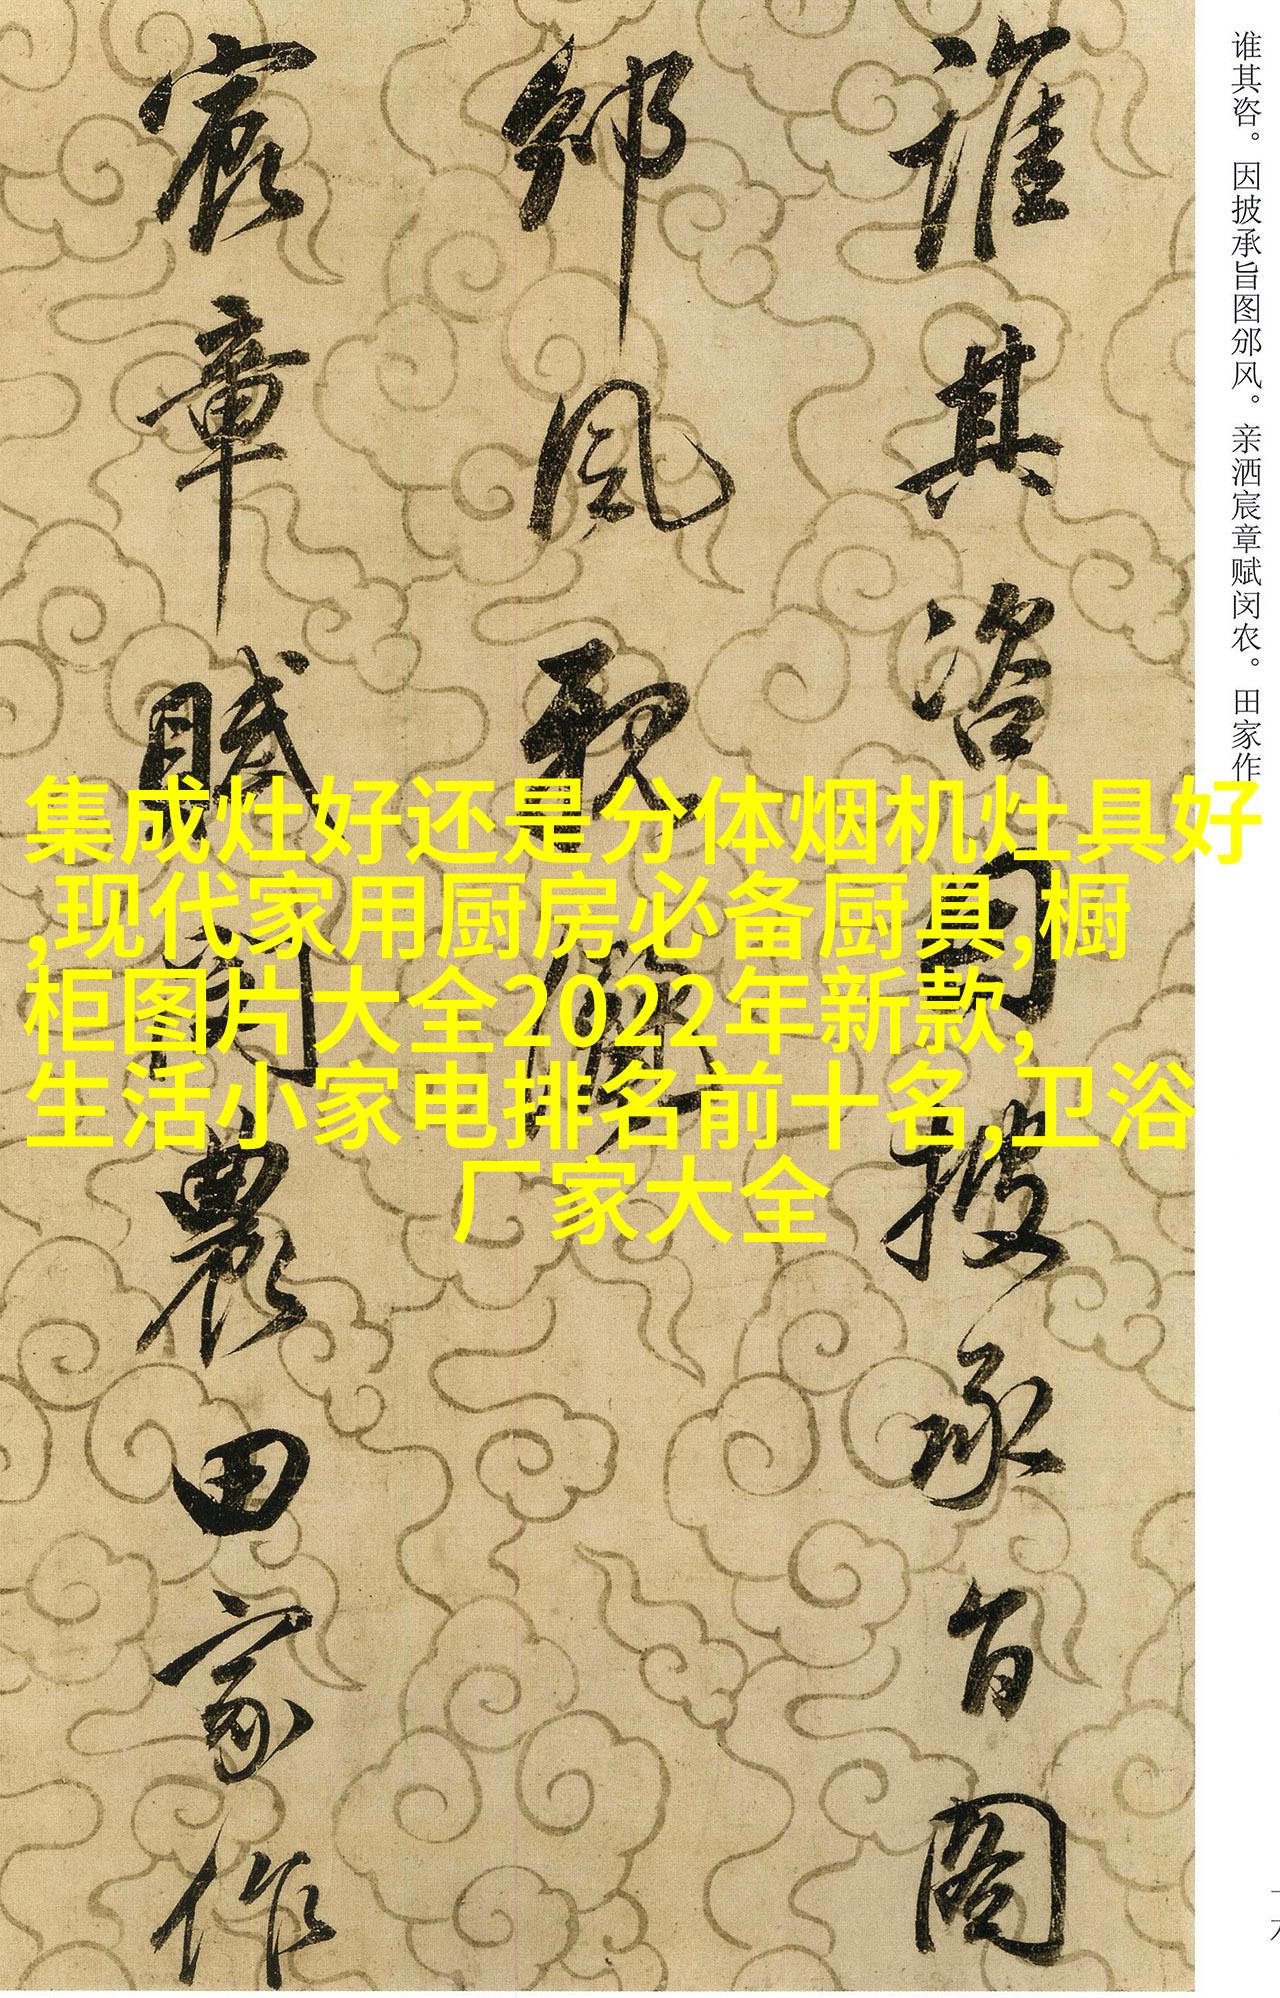 谁其咨。因披承旨图邠风。亲洒宸章赋闵农。田家作
誰其咨因披承旨圖
邠風親灑
宸章賦閔農田家作
集成灶好还是分体烟机灶具好
,现代家用厨房必备厨具,橱
柜图片大全2022年新款,
生活小家电排名前十名,卫浴
厂家大全